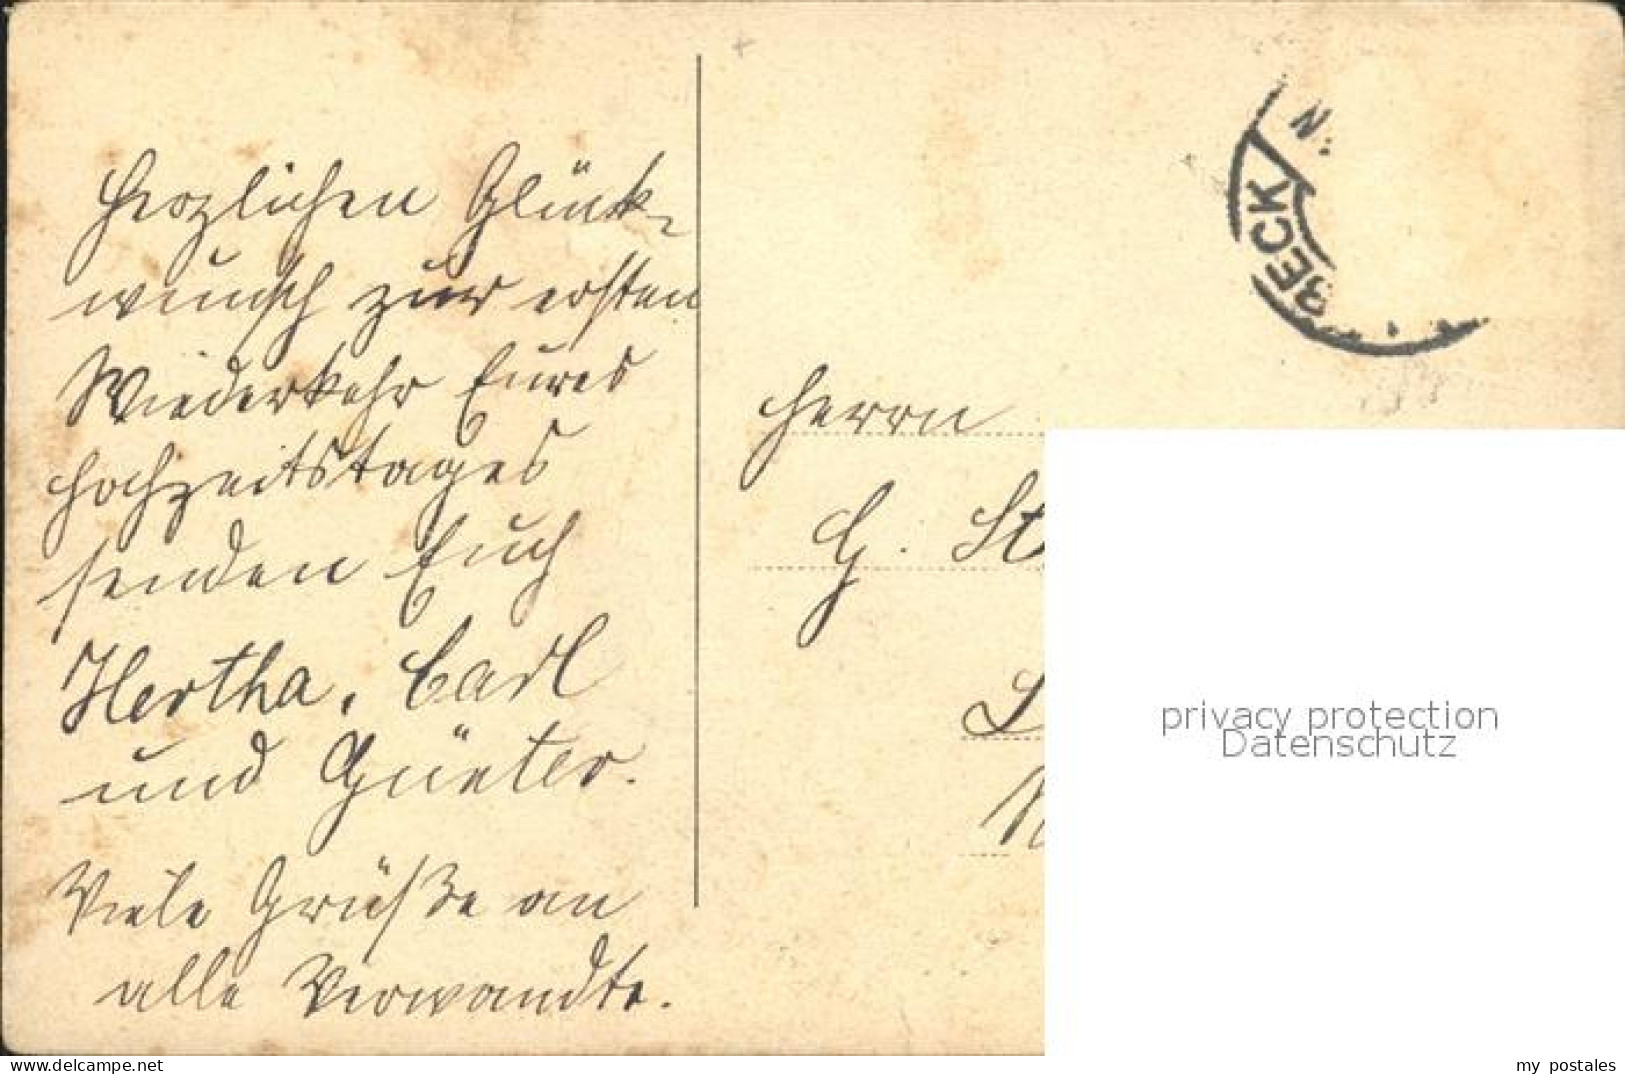 Herzlichen Glück-
wunsch zur ersten
Wiederkehr Eures
Hochzeitstages
senden Euch
Hertha, Carl
und Günter.
Viele Grüße an
alle Verwandte.
BECK
Herrn
G. St
privacy protection
Datenschutz
delcampe.net
my_postales